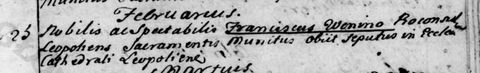 Februarius.
25 Nobilis ac Spectabilis Franciscus Wenino Proconsul
Leopoliens Sacramentis Munitus obiit Sepultus in Eccles
Cathedrali Leopoliens
Martius